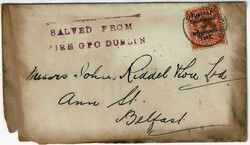 SALVED FROM
FIRE GPO DUBLIN
Messrs John Riddel & Son Ltd
Ann St.
Belfast